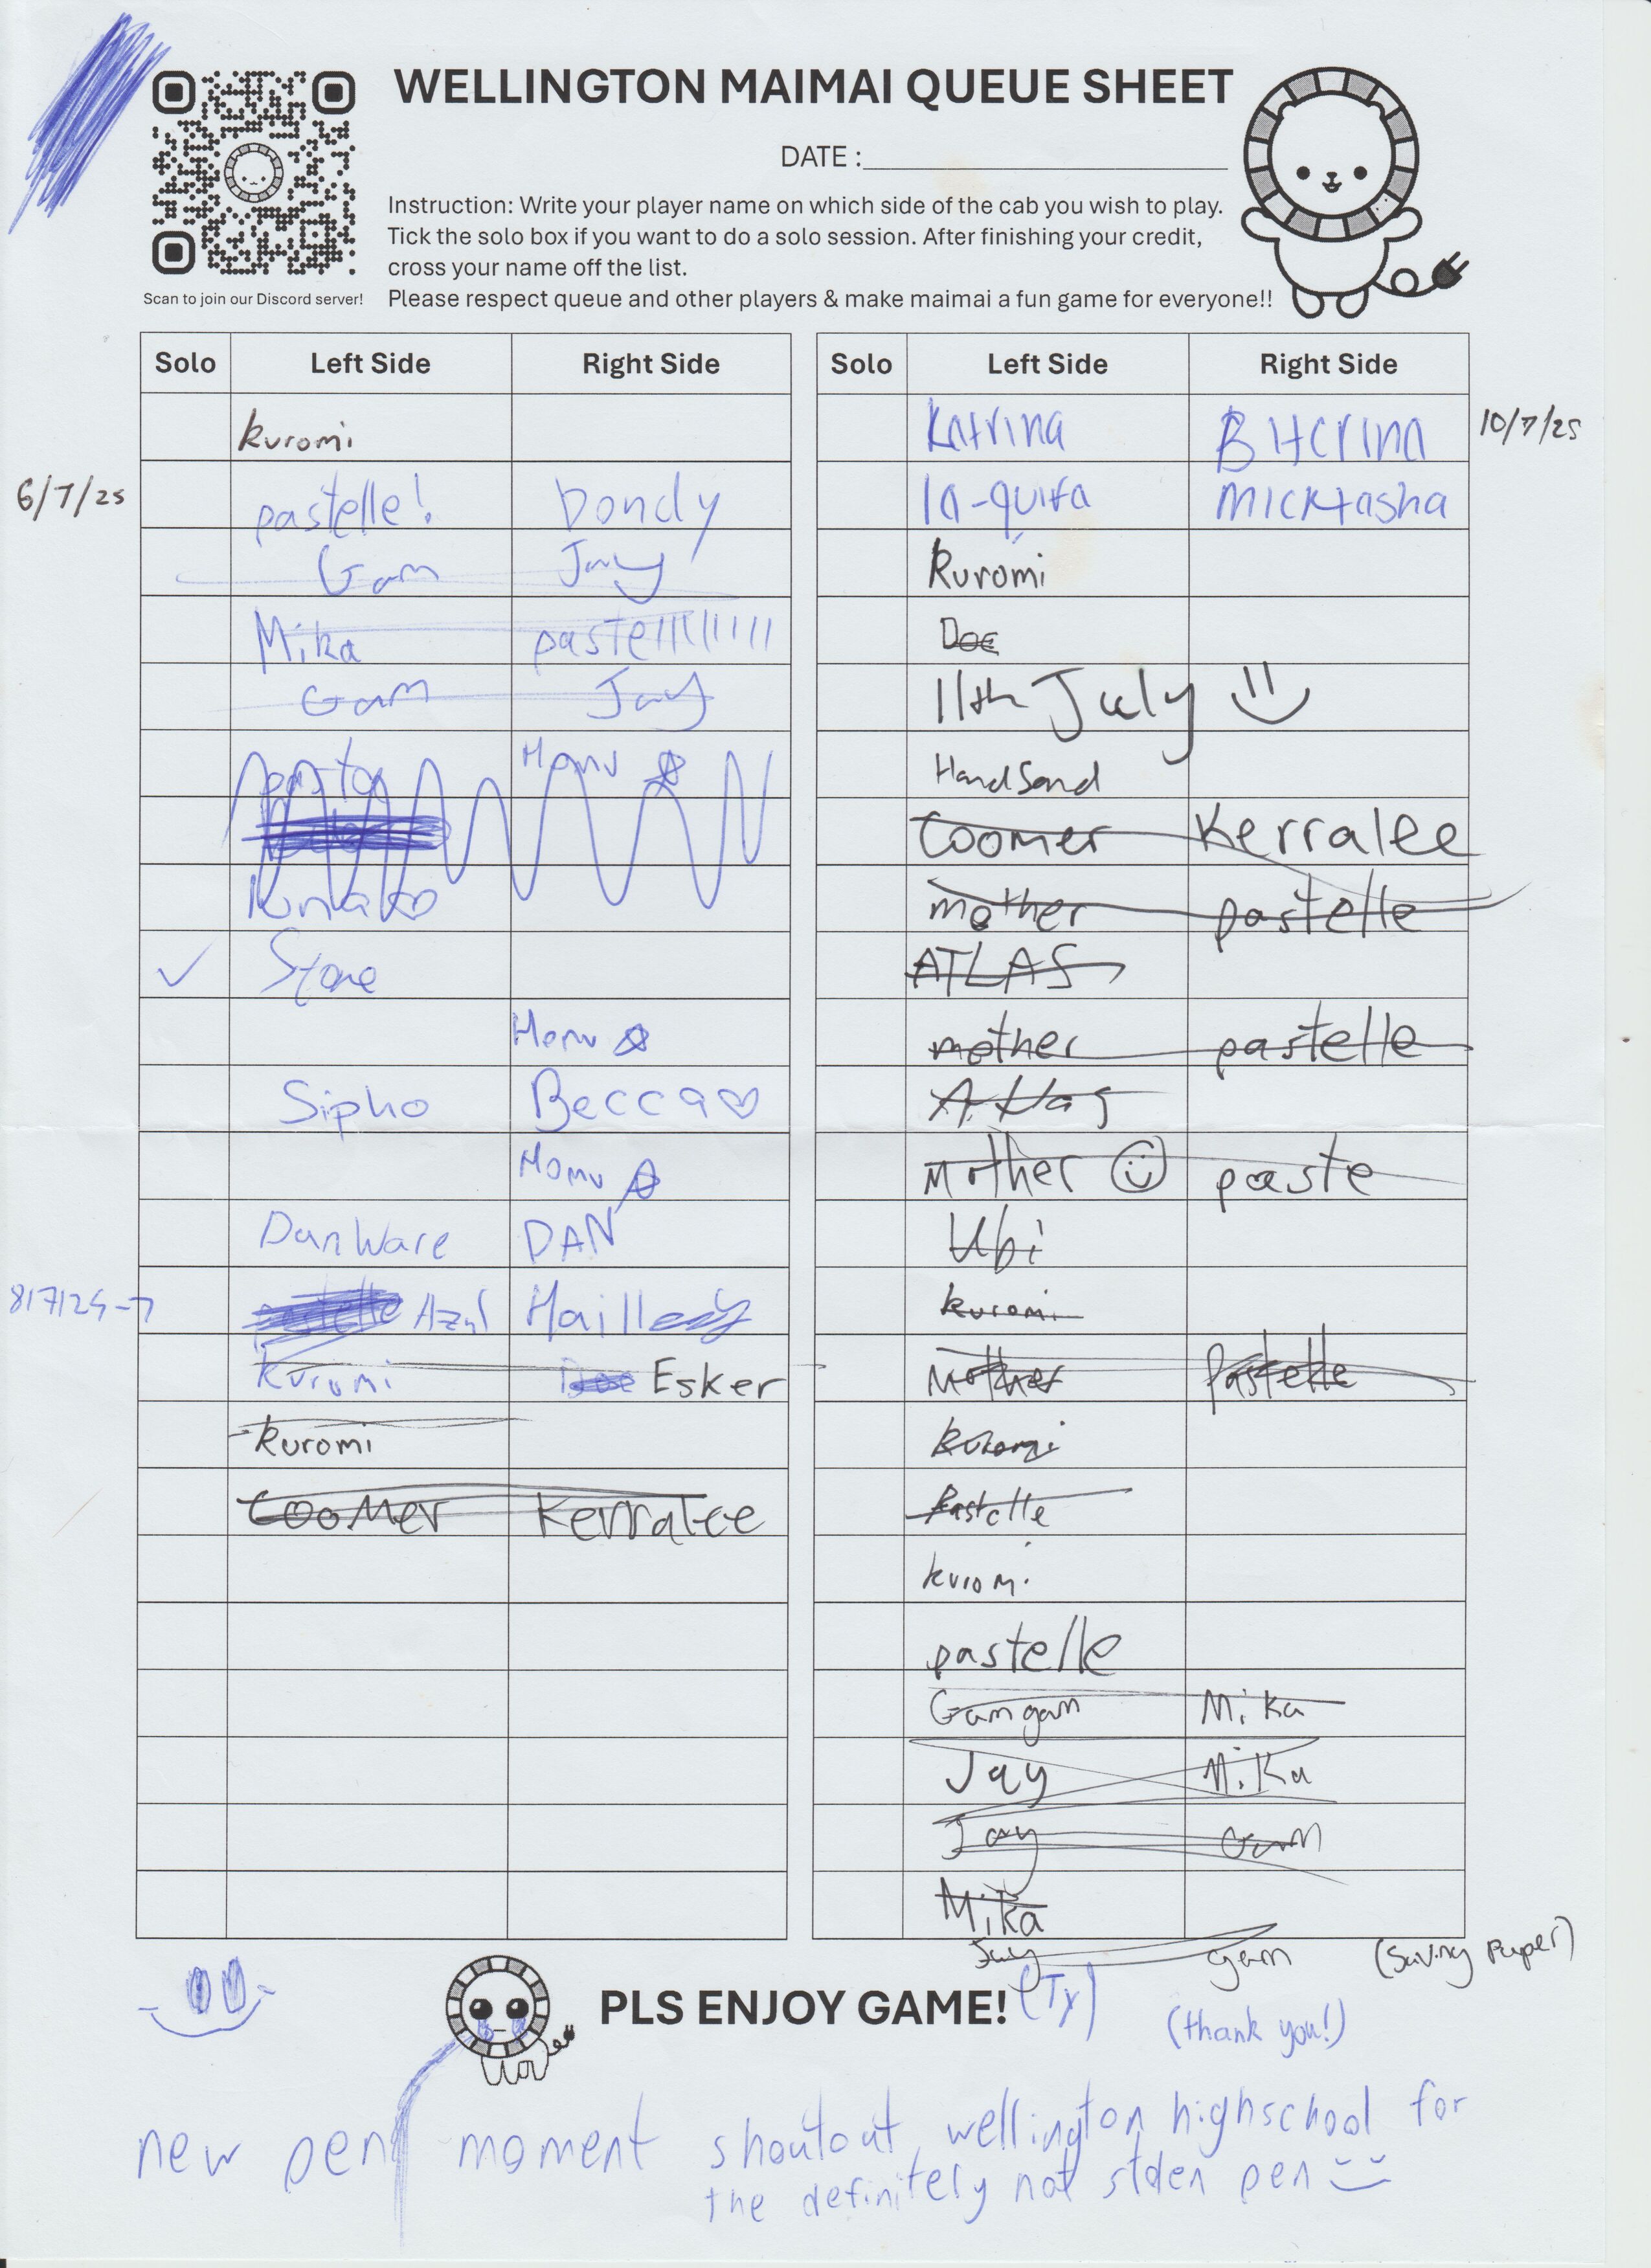 WELLINGTON MAIMAI QUEUE SHEET
DATE :
Instruction: Write your player name on which side of the cab you wish to play.
Tick the solo box if you want to do a solo session. After finishing your credit,
cross your name off the list.
Please respect queue and other players & make maimai a fun game for everyone!!
Scan to join our Discord server!
Solo Left Side Right Side
kuromi
6/7/25 pastelle! Dondy
Gam Jay
Mika pastelllllllll
Gam Jay
pasta Momu
Kinako
✓ Stone
Momu
Sipho Becca♡
Momu
DanWare DAN
8/7/25 Azul
Kuromi Doe Esker
kuromi
Coomer Kerralee
Solo Left Side Right Side
Katrina Bitcrina 10/7/25
la-quifa Micktasha
Kuromi
Doe
11th July
HandSand
Coomer Kerralee
mother pastelle
ATLAS
mother pastelle
Atlas
Mother paste
Ubi
kuromi
Mother Pastelle
Kuromi
Pastelle
kuromi
pastelle
Gamgam Mika
Jay Mika
Jay Gam
Mika
Jay gam (Saving Paper)
PLS ENJOY GAME! (Ty)
(thank you!)
new pen moment shoutout wellington highschool for
the definitely not stolen pen